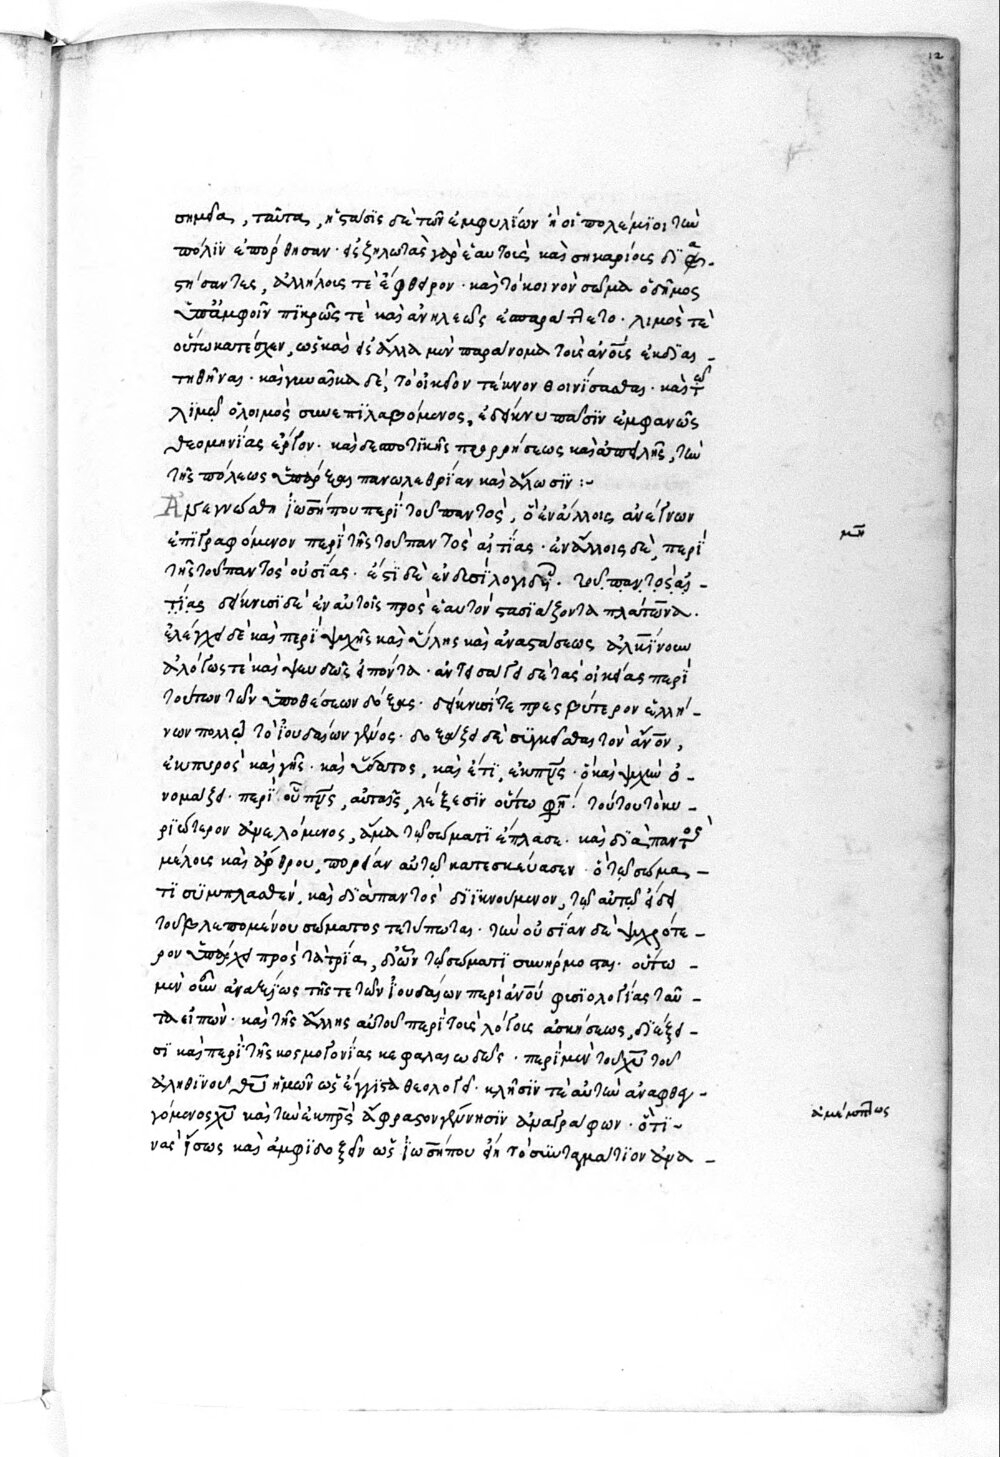 12
σημεῖα, ταῦτα, ἡ στάσις δὲ τῶν ἐμφυλίων ἢ οἱ πολέμιοι τὴν
πόλιν ἐπόρθησαν· εἰς ζηλωτὰς γὰρ ἑαυτοὺς καὶ σηκαρίους δια-
στήσαντες, ἀλλήλους τὲ ἔφθειρον· καὶ τὸ κοινὸν σῶμα ὁ δῆμος
ὑπἀμφοῖν πικρῶς τὲ καὶ ἀνηλεῶς ἐσπαράττετο· λιμός τὲ
οὕτω κατέσχεν, ὡς καὶ εἰς ἄλλα μὲν παράνομα τοὺς ἀνους ἐκδιαι-
τηθῆναι· καὶ γυναῖκα δὲ, τὸ οἰκεῖον τέκνον θοινήσασθαι· καὶ τῶ
λιμῶ ὁ λοιμὸς συνεπιλαβόμενος, ἐδείκνυ πᾶσιν ἐμφανῶς
θεομηνίας ἔργον· καὶ δεσποτικῆς προρρήσεως καὶ ἀπειλῆς, τὴν
τῆς πόλεως ὑπάρξαι πανωλεθρίαν καὶ ἅλωσιν :-
Ἀνεγνώσθη ἰωσήπου περὶ τοῦ παντὸς, ὃ ἐν ἄλλοις ἀνέγνων
ἐπιγραφόμενον περὶ τῆς τοῦ παντὸς αἰτίας· ἐν ἄλλοις δὲ, περὶ
τῆς τοῦ παντὸς οὐσίας· ἔστι δὲ ἐν δυσὶ λογιδίοις· τοῦ παντὸς αἰ-
τίας δείκνυσι δὲ ἐν αὐτοῖς πρὸς ἑαυτὸν στασιάζοντα πλάτωνα·
ἐλέγχει δὲ καὶ περὶ ψυχῆς καὶ ὕλης καὶ ἀναστάσεως ἀλκίνουν
ἀλόγως τὲ καὶ ψευδῶς εἰπόντα· ἀντεισάγει δὲ τὰς οἰκείας περὶ
τούτων τῶν ὑποθέσεων δόξας· δείκνυσί τε πρεσβύτερον ἑλλή-
νων πολλῶ τὸ ἰουδαίων γένος· δοξάζει δὲ συγκεῖσθαι τὸν ἄνον,
ἐκ πυρὸς καὶ γῆς· καὶ ὕδατος, καὶ ἔτι, ἐκ πνς· ὃ καὶ ψυχὴν ὀ-
νομάζει· περὶ οὗ πνς, αὐταῖς, λέξεσιν οὕτω φη· τούτου τὸ κυ-
ριώτερον ἀνελόμενος, ἅμα τῶ σώματι ἔπλασε· καὶ διὰ παντὸς
μέλους καὶ ἄρθρου, πορείαν αὐτῶ κατεσκεύασεν· ὃ τῶ σώμα-
τι συμπλασθὲν, καὶ διὰ παντὸς διικνούμενον, τῶ αὐτῶ εἴδει
τοῦ βλεπομένου σώματος τετύπωται· τὴν οὐσίαν δὲ ψυχρότε-
ρον ὑπάρχει πρὸς τὰ τρία, δι ὧν τῶ σώματι συνήρμοσται· οὕτω
μὲν οὖν ἀναξίως τῆς τε τῶν ἰουδαίων περὶ ἀνου φυσιολογίας ταῦ-
τα εἰπὼν· καὶ τῆς ἄλλης αὐτοῦ περὶ τοὺς λόγους ἀσκήσεως, διέξει-
σι καὶ περὶ τῆς κοσμογονίας κεφαλαιωδῶς· περὶ μὲν τοῦ χυ τοῦ
ἀληθινοῦ θυ ἡμῶν ὡς ἔγγιστα θεολογεῖ· κλῆσίν τε αὐτὴν ἀναφθεγ-
γόμενος χυ καὶ τὴν ἐκ πρς ἄφραστον γέννησιν ἀναγράφων· ὅ τι-
νας ἴσως καὶ ἀμφιδοξεῖν ὡς ἰωσήπου εἴη τὸ συνταγμάτιον ἀνα-
ἀμέμπτως